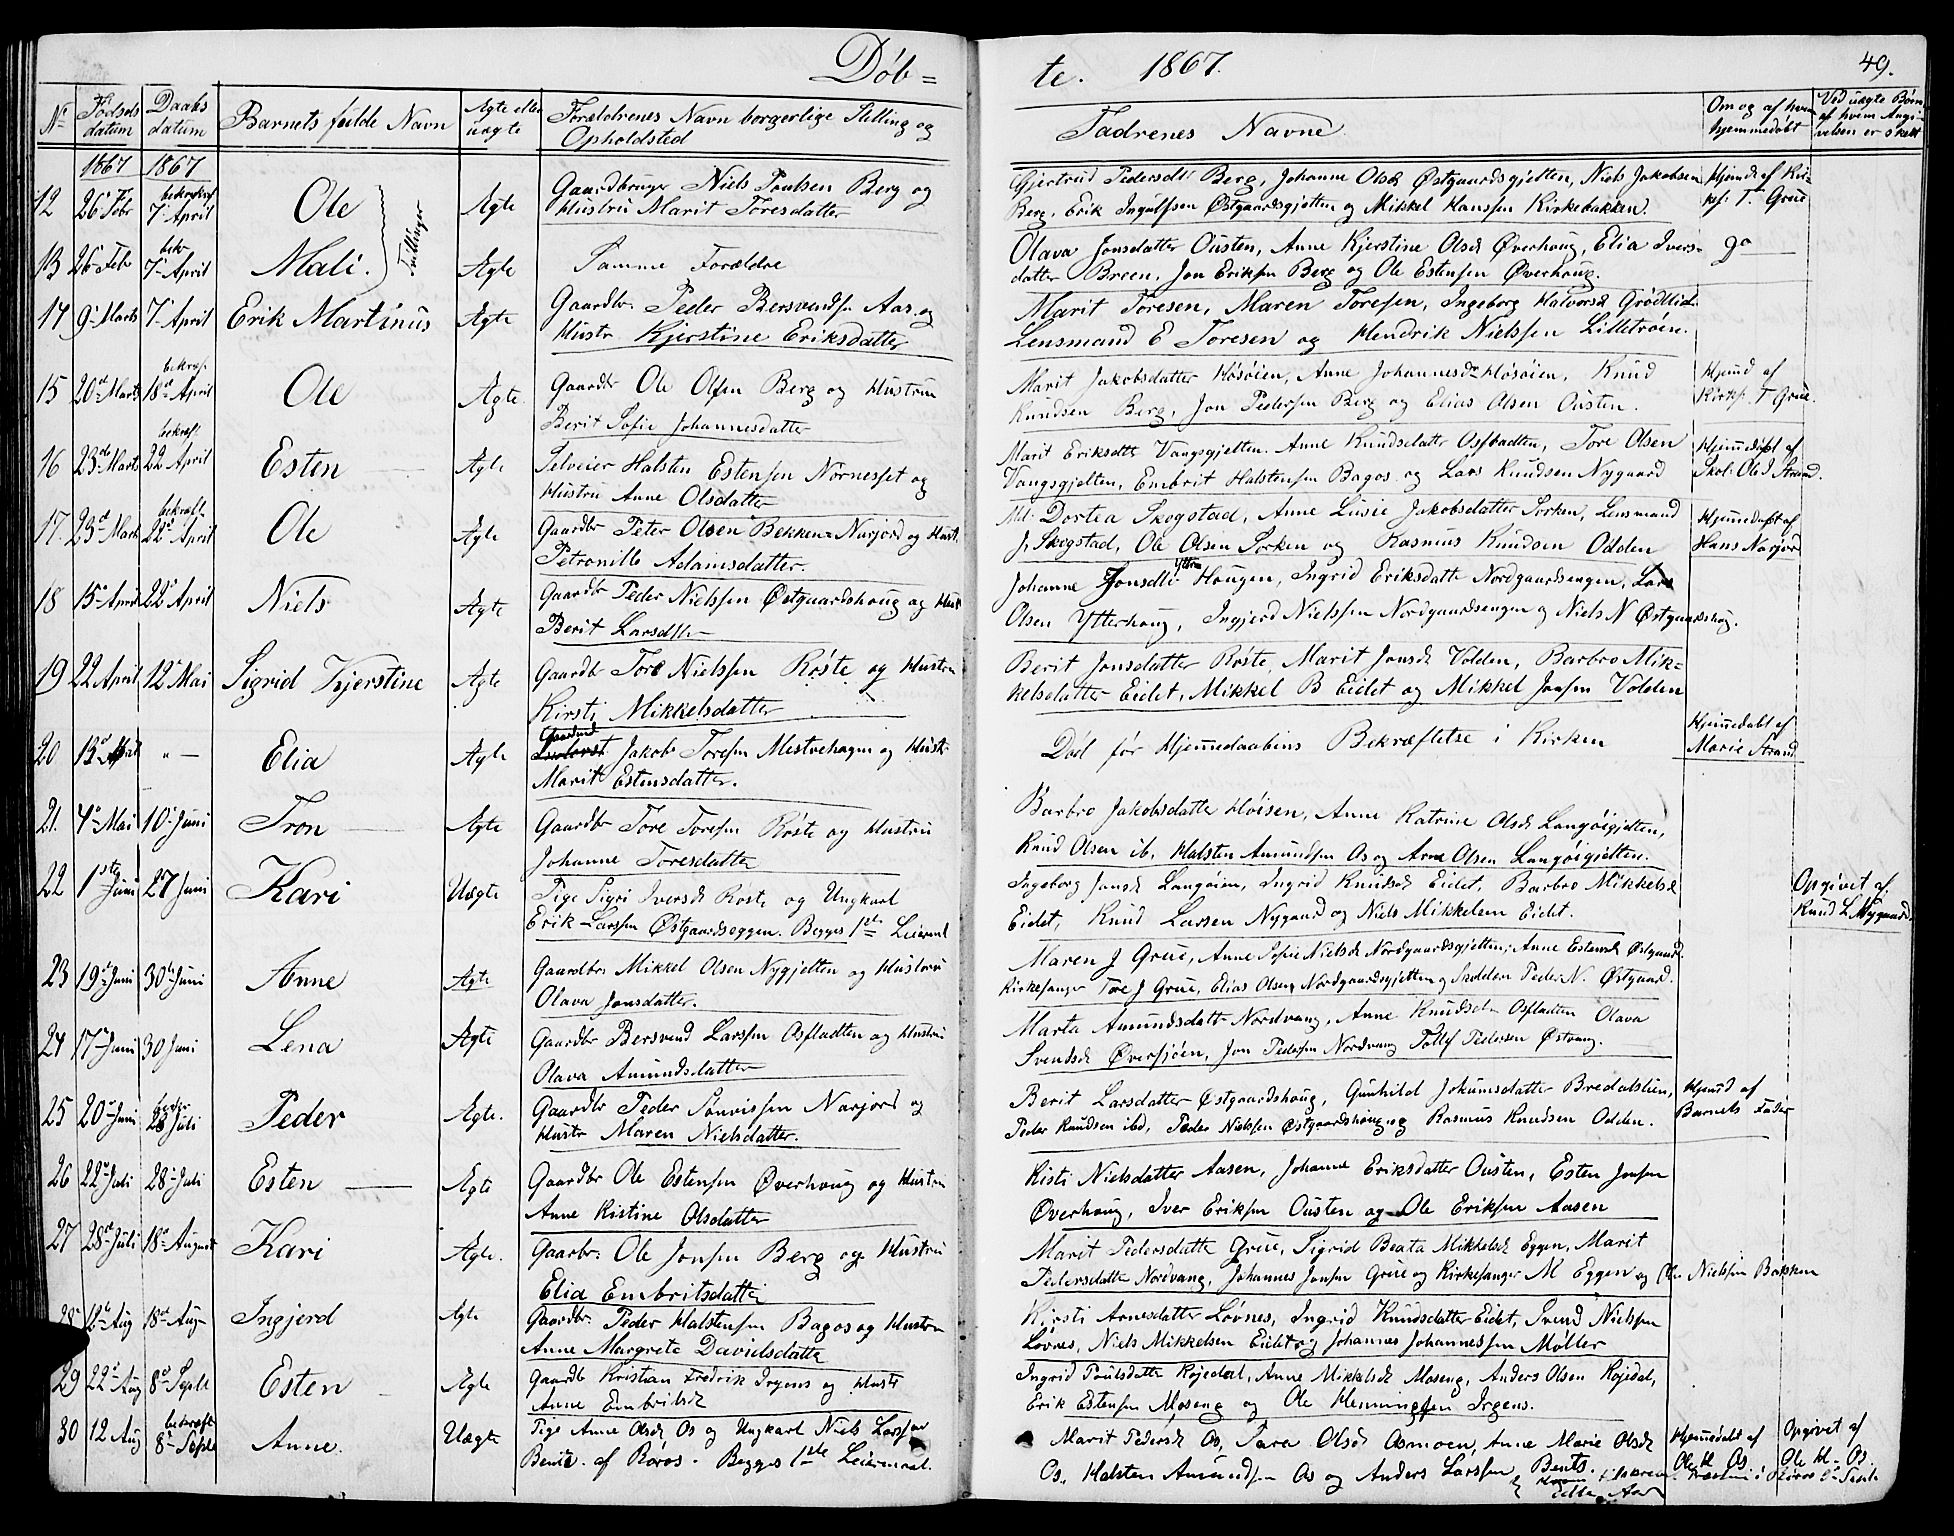 Døb=
te. 1867.
49.
No
Fødsels datum
Daabs datum
Barnets fulde Navn
Ægte eller uægte
Forældrenes Navn borgerlige Stilling og Opholdsted
Fadrenes Navne
Om og af hvem hjemmedøbt
Ved uægte Børn af hvem Angivelsen er skeet
1867 1867
12 26 Febr bekræft 7 April Ole Tvillinger Ægte Gaardbruger Niels Poulsen Berg og
Hustru Marit Toresdatter
Gjertrud Pedersdtr Berg, Johanne Olsd Østgaardsgjelten, Niels Jakobsen
Berg, Erik Ingulfsen Østgaardsgjelten og Mikkel Hansen Kirkebakken.
Hjemd af Kirks. T. Grue
13 26 Feb bekr 7 April Mali. Ægte Samme Forældre
Olava Jonsdatter Ousten, Anne Kjerstine Olsd Øverhoug, Elia Ivers-
datter Breen, Jon Eriksen Berg og Ole Estensen Øverhoug.
do
14 9 Marts 7 April Erik Martinus Ægte Gaardbr. Peder Bersvendsen Aas og
Hustr Kjerstine Eriksdatter
Marit Toresen, Maren Toresen, Ingeborg Halvorsd Grødtlid
Lensmand E Toresen og Hendrik Nielssen Lilletrøen.
15 20d Marts bekræf. 18d April Ole Ægte. Gaardbr Ole Olsen Berg og Hustru
Berit Sofie Johannesdatter
Marit Jakobsdatter Høsøien, Anne Johannesdr Høsøien, Knud
Knudsen Berg, Jon Pedersen Berg og Elias Olsen Ousten.
Hjemd af
Kirks. T Grue.
16 23de Marts bekræft 22 April Esten Ægte Selveier Halsten Estensen Nørnesset og
Hustru Anne Olsdatter
Marit Eriksdtr Vangsgjelten. Anne Knudsdatter Osfladten, Tore Olsen
Vangsgjelten, Embrit Halstensen Bagos og Lars Knudsen Nygaard
Hjemmedøbt af
Skol. Ole J Strand.
17. 23d Marts bekræft 22d April Ole Ægte Gaardbr Peter Olsen Bekken Narjord og Hust.
Petronille Adamsdatter.
Md. Dortea Skogstad, Anne Lusie Jakobsdatter Sorken, Lensmand
J. Skogstad, Ole Olsen Sorken og Rasmus Knudsen Odden
Hjemmedøbt af
Hans Narjor
18 15 April 22 April Niels Ægte Gaardbr Peder Nielssen Østgaardshoug og Hust
Berit Larsdtr
Johanne Jonsdtr Yttre Hougen, Ingrid Eriksdatte Nordgaardsengen, Lars
Olsen Ytterhoug, Ingjerd Nielssen Nordgaardsengen og Niels N Østgaardshoug.
19 22 April 12 Mai Sigrid Kjerstine Ægte Gaardbr Tore Nielssen Røste og Hustru
Kirsti Mikkelsdatter
Berit Jonsdatter Røste, Marit Jonsd Volden, Barbro Mik-
kelsdatter Eidet, Mikkel B Eidet og Mikkel Jonsen Volden
20 13d " — Elia Ægte Jakob Toresen Mestvehagen og Hust.
Marit Estensdatter.
Død før Hjemmedaabens Bekræftelse i Kirken
Hjemmedøbt af
Marie Strand
21. 4 Mai 10 Juni Tron Ægte Gaardbr Tore Toresen Røste og Hustru
Johanne Toresdatter
Barbro Jakobsdatte Høisen, Anne Katrine Olsd Langøigjelten,
Knud Olsen ib, Halsten Amundsen Os og Arne Olsen Langøigjelten.
22 1ste Juni 27 Juni Kari Uægte Pige Sigri Iversd Røste og Ungkarl
Erik Larssen Østgaardseggen. Begges 1ste Leierml
Ingeborg Jonsd Langøien, Ingrid Knudsd Eidet, Barbro Mikkelsd
Eidet, Knud Larsen Nygaard og Niels Mikkelsen Eidet.
Opgivet af
Knud L Nygaard.
23 19d Juni 30te Juni Anne Ægte Gaardbr. Mikkel Olsen Nygjelten og Hustru
Olava Jonsdatter.
Maren J Grue, Anne Sofie Nielsd Nordgaardsgjelten, Anne Estensd Østgaard.
Kirkesanger Tore J Grue, Elias Olsen Nordgaardsgjelten og Peder N. Østgaard.
24 17 Juni 30 Juni Lena Ægte Gaardbr Bersvend Larssen Osfladten og Hustru
Olava Amundsdatter
Marta Amundsdatt Nordvang, Anne Knudsd Osfladten Olava
Svendsd Øversjøen, Jon Pedersen Nordvang Tollef Pedersen Østvang.
25 20 Juni 28 Juli Peder Ægte. Gaardbr Peder Simissen Narjord og
Hustr Maren Nielsdatter.
Berit Larsdatter Østgaardshoug, Gunhild Jokumsdatter Bredalslien,
Peder Knudsen ibd, Peder Nielsen Østgaardshoug og Rasmus Knudsen Odden.
Hjemd af
Barnets Fader
26 22 Juli 28 Juli Esten Ægte Gaardbr Ole Estensen Øverhoug og Hustru
Anne Kistine Olsdatter
Kisti Nielsdatter Aasen, Johanne Eriksdatter Ousten, Esten Jonsen
Øverhoug, Iver Eriksen Ousten og Ole Eriksen Aasen
27 28d Juli 18d August Kari Ægte. Gaarbr. Ole Jonsen Berg og Hustru
Elia Embritsdatter
Marit Pedersdatte Grue, Sigrid Beata Mikkelsd Eggen, Marit
Pedersdatte Nordvang, Johannes Jonsen Grue og Kirkesanger M Eggen og Ole Nielsen Bakken
28 12 Aug 18d Aug Ingjerd Ægte Gaardbr. Peder Halstensen Bagos og Hustru
Anne Margrete Davidsdatte
Kirsti Arnesdatter Løvnes, Ingrid Knudsdatter Eidet, Svend Nielsen
Løvnes, Niels Mikkelsen Eidet og Johannes Johannessen Møller
29 22 Aug 8d Septb Esten Ægte Gaardb Kristian Fredrik Irgens og Hust
Anne Embritsd
Ingrid Poulsdatte Røjedal, Anne Mikkelsd Moseng, Anders Olsen Røjedal,
Erik Estensen Moseng og Ole Henningsen Irgens.
30 12 Aug bekræft 8d Septb Anne. Uægte Pige Anne Olsd Os og Ungkarl Niels Larssen
Bents af Røros. Begges 1ste Leiermaal.
Marit Pedersd Os, Sara Olsd Osmoen, Anne Marie Olsd
Os, Halsten Amundsen Os og Anders Larssen Bents.
Hjemmedøbt af
Ole H Os
Opgivet af
Ole H. Os.